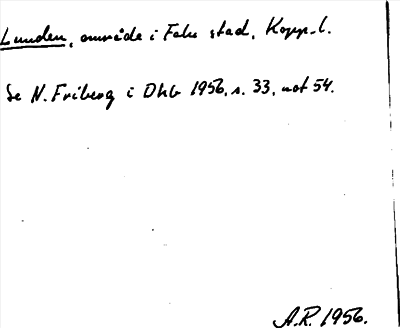 Lunden, område i Falu stad, Kopp. l.
Se N. Friberg i Dhb 1956, s. 33, not 54.
A.R. 1956.